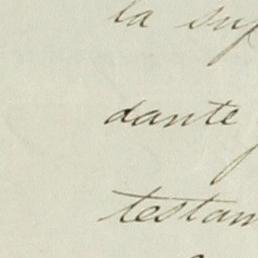 la sup
dante
testam